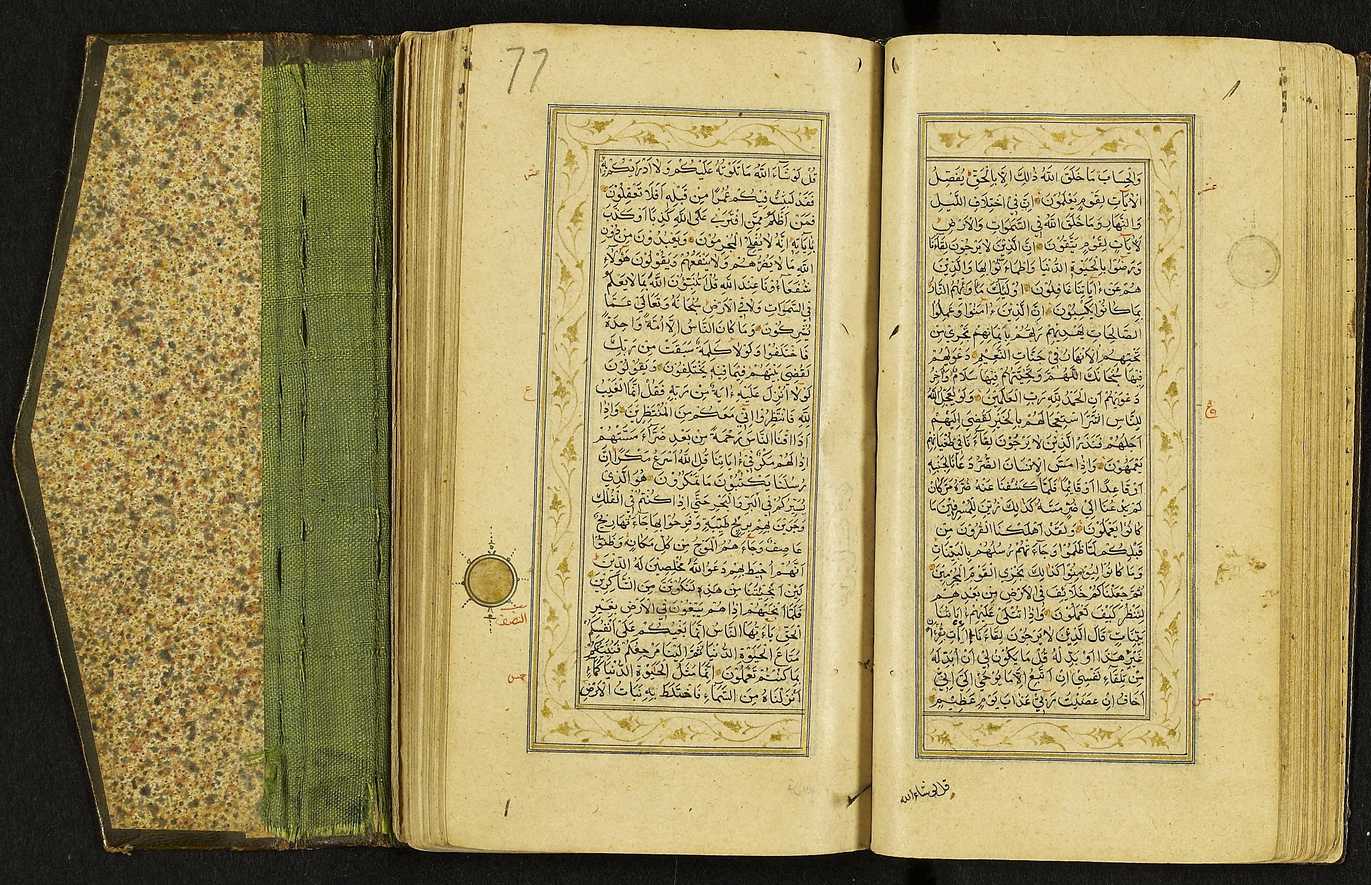 وَالْحِسَابَ مَا خَلَقَ اللَّهُ ذَالِكَ اِلَّا بِالْحَقِّ يُفَصِّلُ
الْاٰيَاتِ لِقَوْمٍ يَعْلَمُونَ اِنَّ فِى اخْتِلَافِ اللَّيْلِ
وَالنَّهَارِ وَمَا خَلَقَ اللَّهُ فِى السَّمٰوَاتِ وَالْاَرْضِ
لَاٰيَاتٍ لِقَوْمٍ يَتَّقُونَ اِنَّ الَّذِينَ لَا يَرْجُونَ لِقَاءَنَا
وَرَضُوا بِالْحَيٰوةِ الدُّنْيَا وَاطْمَاَنُّوا بِهَا وَالَّذِينَ
هُمْ عَنْ ءَايَاتِنَا غَافِلُونَ اُولٰئِكَ مَاْوٰيهُمُ النَّارُ
بِمَا كَانُوا يَكْسِبُونَ اِنَّ الَّذِينَ ءَامَنُوا وَعَمِلُوا
الصَّالِحَاتِ يَهْدِيهِمْ رَبُّهُمْ بِاِيمَانِهِمْ تَجْرِى مِنْ
تَحْتِهِمُ الْاَنْهَارُ فِى جَنَّاتِ النَّعِيمِ دَعْوٰيهُمْ
فِيهَا سُبْحَانَكَ اللَّهُمَّ وَتَحِيَّتُهُمْ فِيهَا سَلَامٌ وَاٰخِرُ
دَعْوٰيهُمْ اَنِ الْحَمْدُ لِلَّهِ رَبِّ الْعَالَمِينَ وَلَوْ يُعَجِّلُ اللَّهُ
لِلنَّاسِ الشَّرَّ اسْتِعْجَالَهُمْ بِالْخَيْرِ لَقُضِىَ اِلَيْهِمْ
اَجَلُهُمْ فَنَذَرُ الَّذِينَ لَا يَرْجُونَ لِقَاءَنَا فِى طُغْيَانِهِمْ
يَعْمَهُونَ وَاِذَا مَسَّ الْاِنْسَانَ الضُّرُّ دَعَانَا لِجَنْبِهِ
اَوْ قَاعِدًا اَوْ قَائِمًا فَلَمَّا كَشَفْنَا عَنْهُ ضُرَّهُ مَرَّ كَاَنْ
لَمْ يَدْعُنَا اِلٰى ضُرٍّ مَسَّهُ كَذَالِكَ زُيِّنَ لِلْمُسْرِفِينَ مَا
كَانُوا يَعْمَلُونَ وَلَقَدْ اَهْلَكْنَا الْقُرُونَ مِنْ
قَبْلِكُمْ لَمَّا ظَلَمُوا وَجَاءَتْهُمْ رُسُلُهُمْ بِالْبَيِّنَاتِ
وَمَا كَانُوا لِيُؤْمِنُوا كَذَالِكَ نَجْزِى الْقَوْمَ الْمُجْرِمِينَ
ثُمَّ جَعَلْنَاكُمْ خَلَائِفَ فِى الْاَرْضِ مِنْ بَعْدِهِمْ
لِنَنْظُرَ كَيْفَ تَعْمَلُونَ وَاِذَا تُتْلٰى عَلَيْهِمْ اٰيَاتُنَا
بَيِّنَاتٍ قَالَ الَّذِينَ لَا يَرْجُونَ لِقَاءَنَا ائْتِ بِقُرْءَانٍ
غَيْرِ هٰذَا اَوْ بَدِّلْهُ قُلْ مَا يَكُونُ لِى اَنْ اُبَدِّلَهُ
مِنْ تِلْقَاءِ نَفْسِى اِنْ اَتَّبِعُ اِلَّا مَا يُوحٰى اِلَىَّ اِنِّى
اَخَافُ اِنْ عَصَيْتُ رَبِّى عَذَابَ يَوْمٍ عَظِيمٍ
قل لو شاء الله
77
قُلْ لَوْ شَاءَ اللَّهُ مَا تَلَوْتُهُ عَلَيْكُمْ وَلَا اَدْرٰيكُمْ بِهِ
فَقَدْ لَبِثْتُ فِيكُمْ عُمُرًا مِنْ قَبْلِهِ اَفَلَا تَعْقِلُونَ
فَمَنْ اَظْلَمُ مِمَّنِ افْتَرٰى عَلَى اللَّهِ كَذِبًا اَوْ كَذَّبَ
بِاٰيَاتِهِ اِنَّهُ لَا يُفْلِحُ الْمُجْرِمُونَ وَيَعْبُدُونَ مِنْ دُونِ
اللَّهِ مَا لَا يَضُرُّهُمْ وَلَا يَنْفَعُهُمْ وَيَقُولُونَ هٰؤُلَاءِ
شُفَعَاؤُنَا عِنْدَ اللَّهِ قُلْ اَتُنَبِّئُونَ اللَّهَ بِمَا لَا يَعْلَمُ
فِى السَّمٰوَاتِ وَلَا فِى الْاَرْضِ سُبْحَانَهُ وَتَعَالٰى عَمَّا
يُشْرِكُونَ وَمَا كَانَ النَّاسُ اِلَّا اُمَّةً وَاحِدَةً
فَاخْتَلَفُوا وَلَوْلَا كَلِمَةٌ سَبَقَتْ مِنْ رَبِّكَ
لَقُضِىَ بَيْنَهُمْ فِيمَا فِيهِ يَخْتَلِفُونَ وَيَقُولُونَ
لَوْلَا اُنْزِلَ عَلَيْهِ ءَايَةٌ مِنْ رَبِّهِ فَقُلْ اِنَّمَا الْغَيْبُ
لِلَّهِ فَانْتَظِرُوا اِنِّى مَعَكُمْ مِنَ الْمُنْتَظِرِينَ وَاِذَا
اَذَقْنَا النَّاسَ رَحْمَةً مِنْ بَعْدِ ضَرَّاءَ مَسَّتْهُمْ
اِذَا لَهُمْ مَكْرٌ فِى ءَايَاتِنَا قُلِ اللَّهُ اَسْرَعُ مَكْرًا اِنَّ
رُسُلَنَا يَكْتُبُونَ مَا تَمْكُرُونَ هُوَ الَّذِى
يُسَيِّرُكُمْ فِى الْبَرِّ وَالْبَحْرِ حَتّٰى اِذَا كُنْتُمْ فِى الْفُلْكِ
وَجَرَيْنَ بِهِمْ بِرِيحٍ طَيِّبَةٍ وَفَرِحُوا بِهَا جَاءَتْهَا رِيحٌ
عَاصِفٌ وَجَاءَهُمُ الْمَوْجُ مِنْ كُلِّ مَكَانٍ وَظَنُّوا
اَنَّهُمْ اُحِيطَ بِهِمْ دَعَوُا اللَّهَ مُخْلِصِينَ لَهُ الدِّينَ
لَئِنْ اَنْجَيْتَنَا مِنْ هٰذِهِ لَنَكُونَنَّ مِنَ الشَّاكِرِينَ
فَلَمَّا اَنْجٰيهُمْ اِذَا هُمْ يَبْغُونَ فِى الْاَرْضِ بِغَيْرِ
الْحَقِّ يَا اَيُّهَا النَّاسُ اِنَّمَا بَغْيُكُمْ عَلٰى اَنْفُسِكُمْ
مَتَاعَ الْحَيٰوةِ الدُّنْيَا ثُمَّ اِلَيْنَا مَرْجِعُكُمْ فَنُنَبِّئُكُمْ
بِمَا كُنْتُمْ تَعْمَلُونَ اِنَّمَا مَثَلُ الْحَيٰوةِ الدُّنْيَا كَمَاءٍ
اَنْزَلْنَاهُ مِنَ السَّمَاءِ فَاخْتَلَطَ بِهِ نَبَاتُ الْاَرْضِ
عشر
ع
النصف
خمس